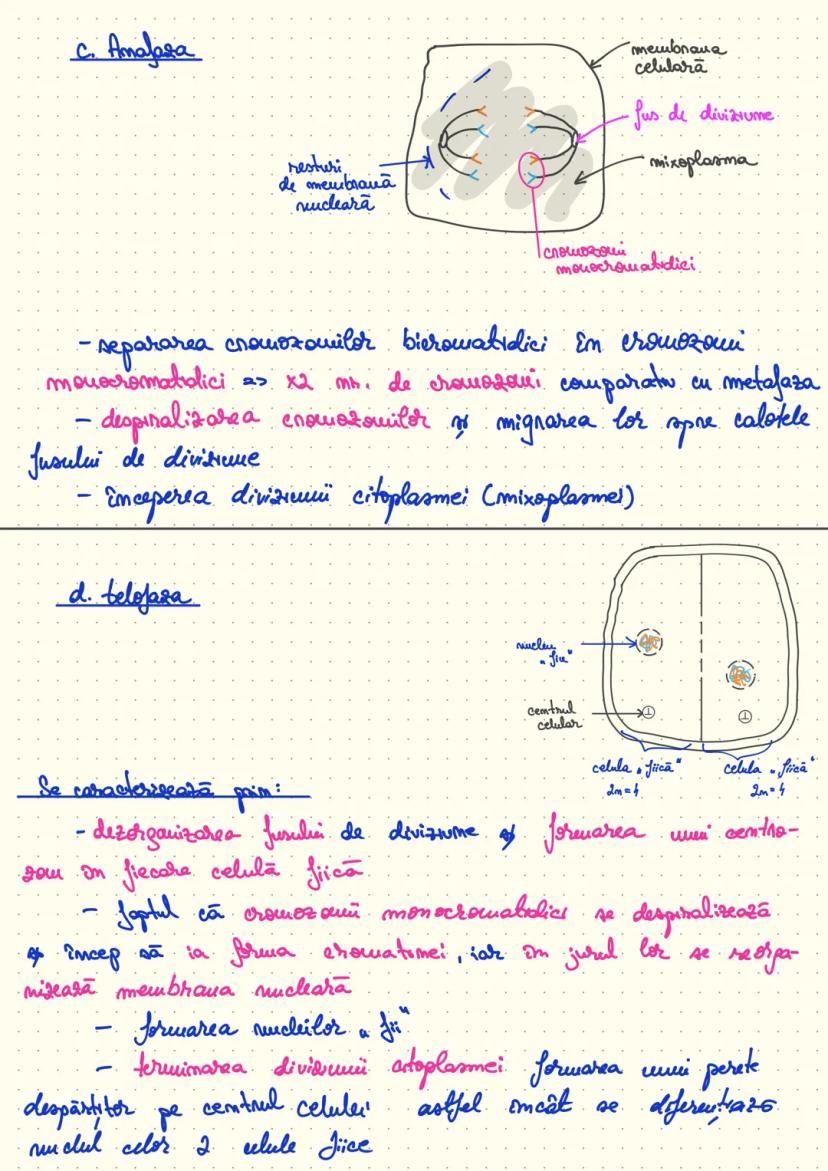 c. Anafaza
membrana
celulară
fus de diviziune
mixoplasma
resturi
de membrană
nucleară
cromozomi
monocromatidici
- separarea cromozomilor bicromatidici în cromozomi
monocromatidici => x2 nr. de cromozomi comparativ cu metafaza
- despiralizarea cromozomilor și migrarea lor spre calotele
fusului de diviziune
- începerea diviziunii citoplasmei (mixoplasmei)
d. telofaza
nucleu
„fiu"
centrul
celular
celula „fiică"
2n=4
celula „fiică"
2n=4
Se caracterizează prin:
- dezorganizarea fusului de diviziune și formarea unui centro-
zom în fiecare celulă fiică
- faptul că cromozomii monocromatidici se despiralizează
și încep să ia forma cromatinei, iar în jurul lor se reorga-
nizează membrana nucleară
- formarea nucleilor „fii"
- terminarea diviziunii citoplasmei formarea unui perete
despărțitor pe centrul celulei astfel încât se diferențiază
celor 2 celule fiice